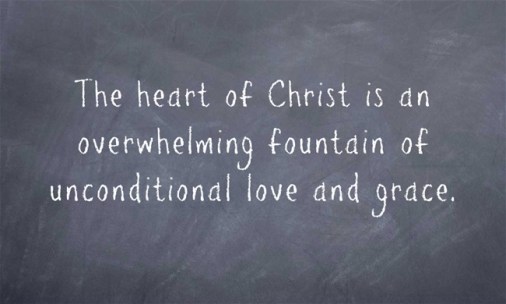 The heart of Christ is an
overwhelming fountain of
unconditional love and grace.